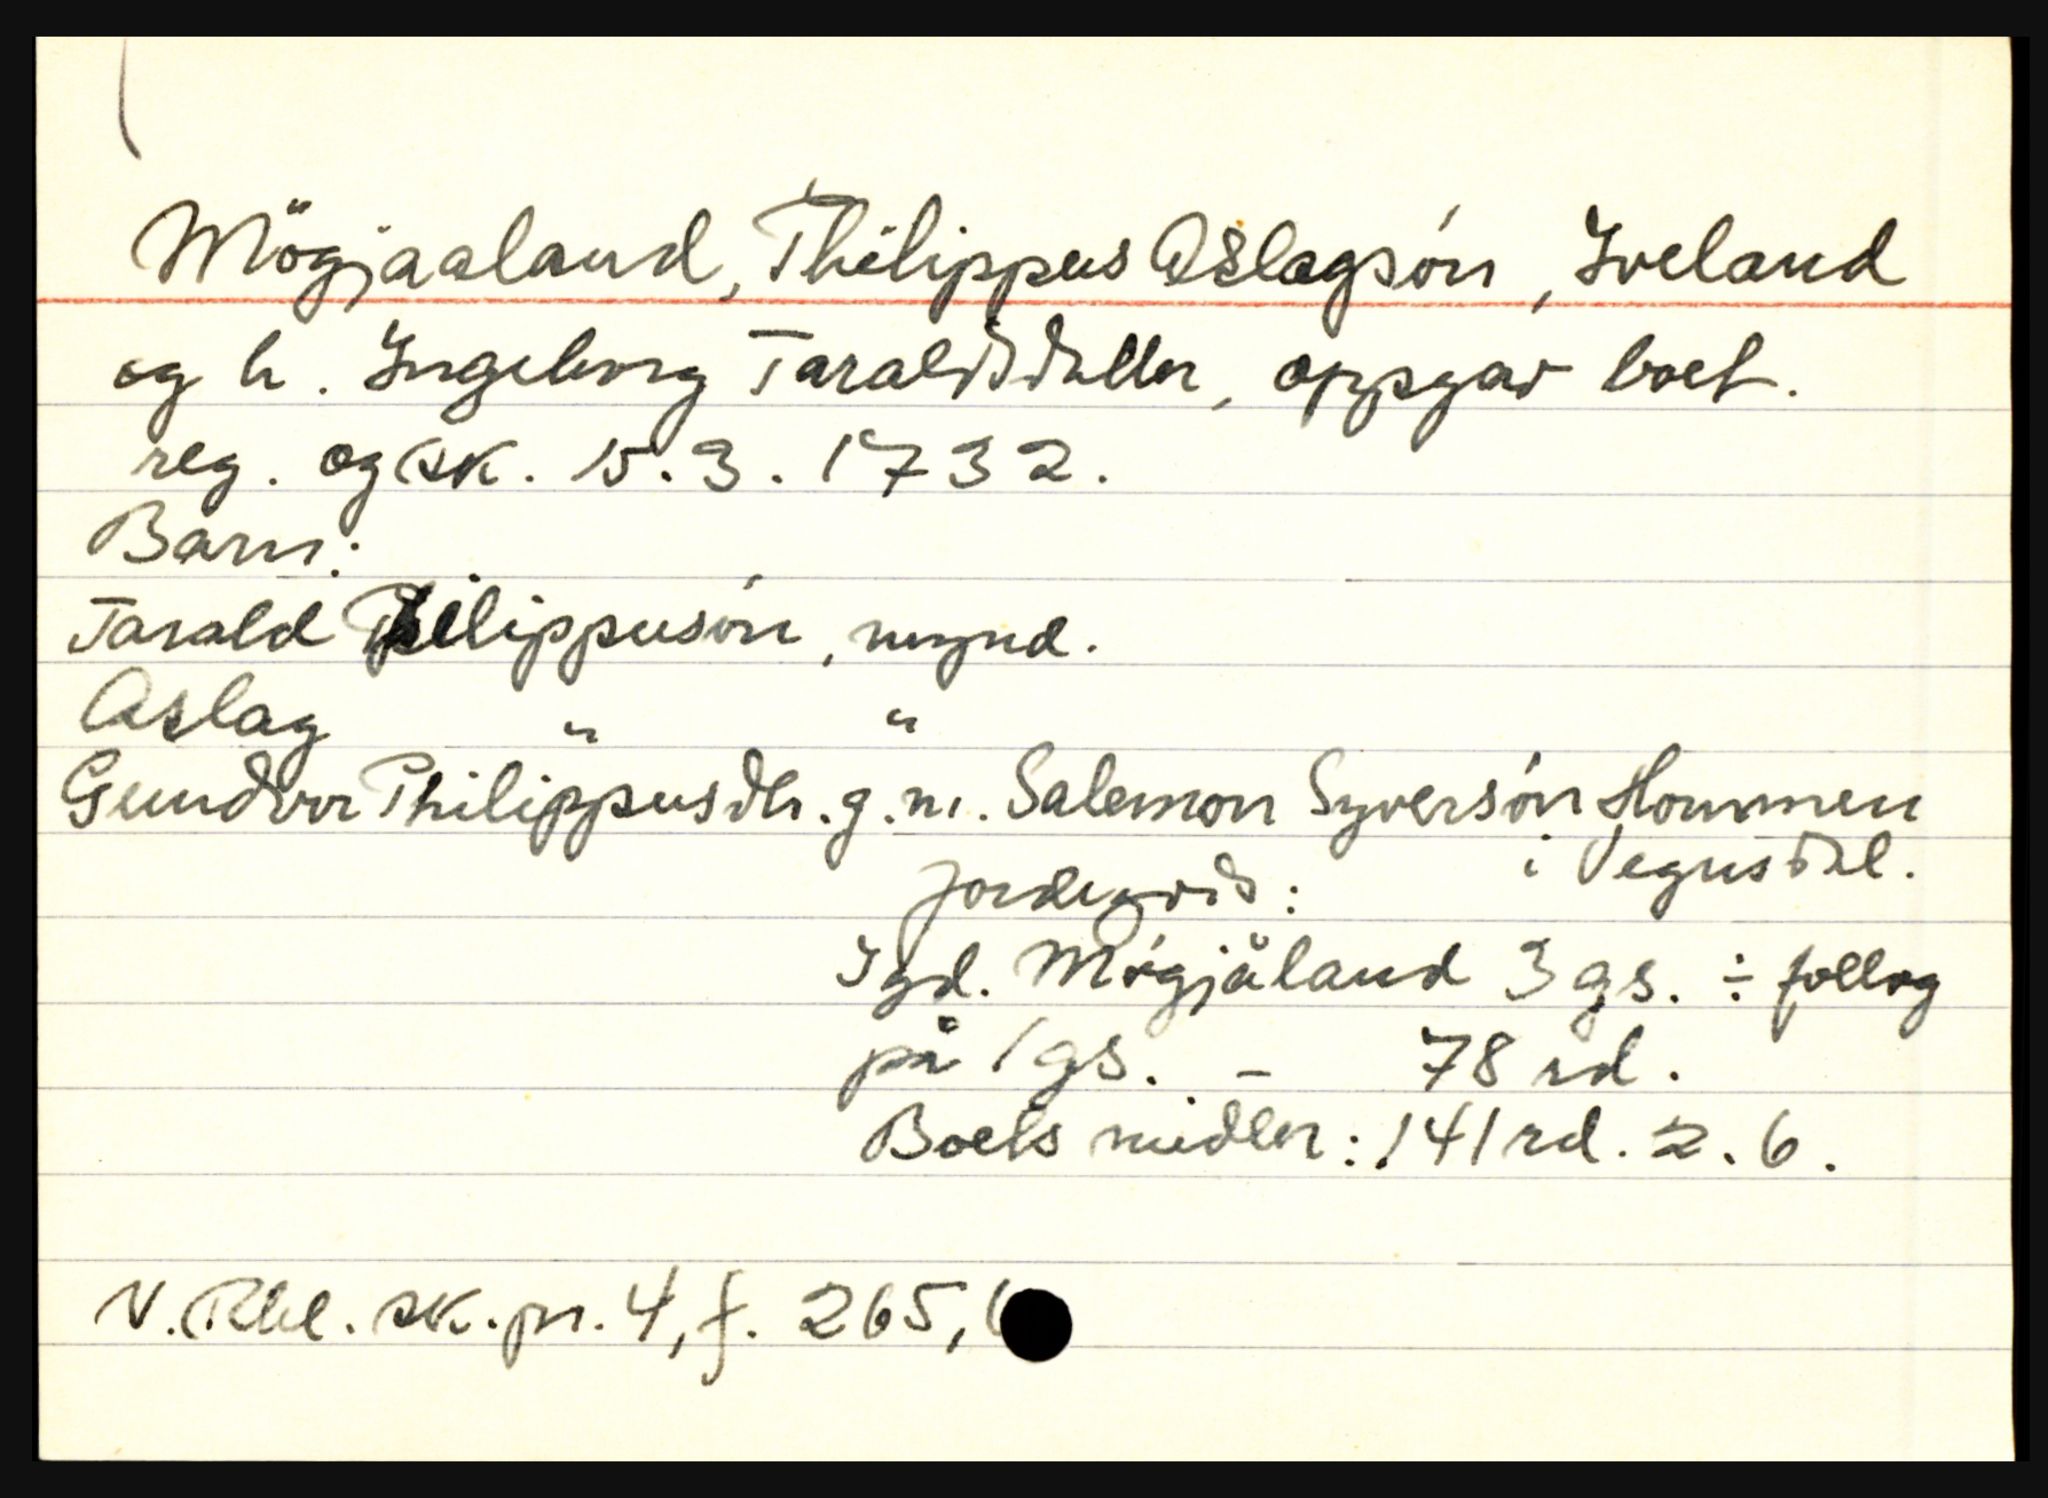 Mögjaaland, Philippus Aslagsón, Iveland
og h. Ingeborg Taraldsdatter, oppgav boet.
reg. og sk. 15.3.1732.
Barn:
Tarald Philippusón, mynd.
Aslag " "
Gundvor Philippusdtr. g.m. Salemon Syversón Hommen
i Vegusdal.
Jordegods:
I gd. Mógjåland 3 gs. ÷ follog
på 1 gs. - 78 rd.
Boets midler: 141 rd. 2. 6.
N. Rbl. sk. pr. 4, f. 265,